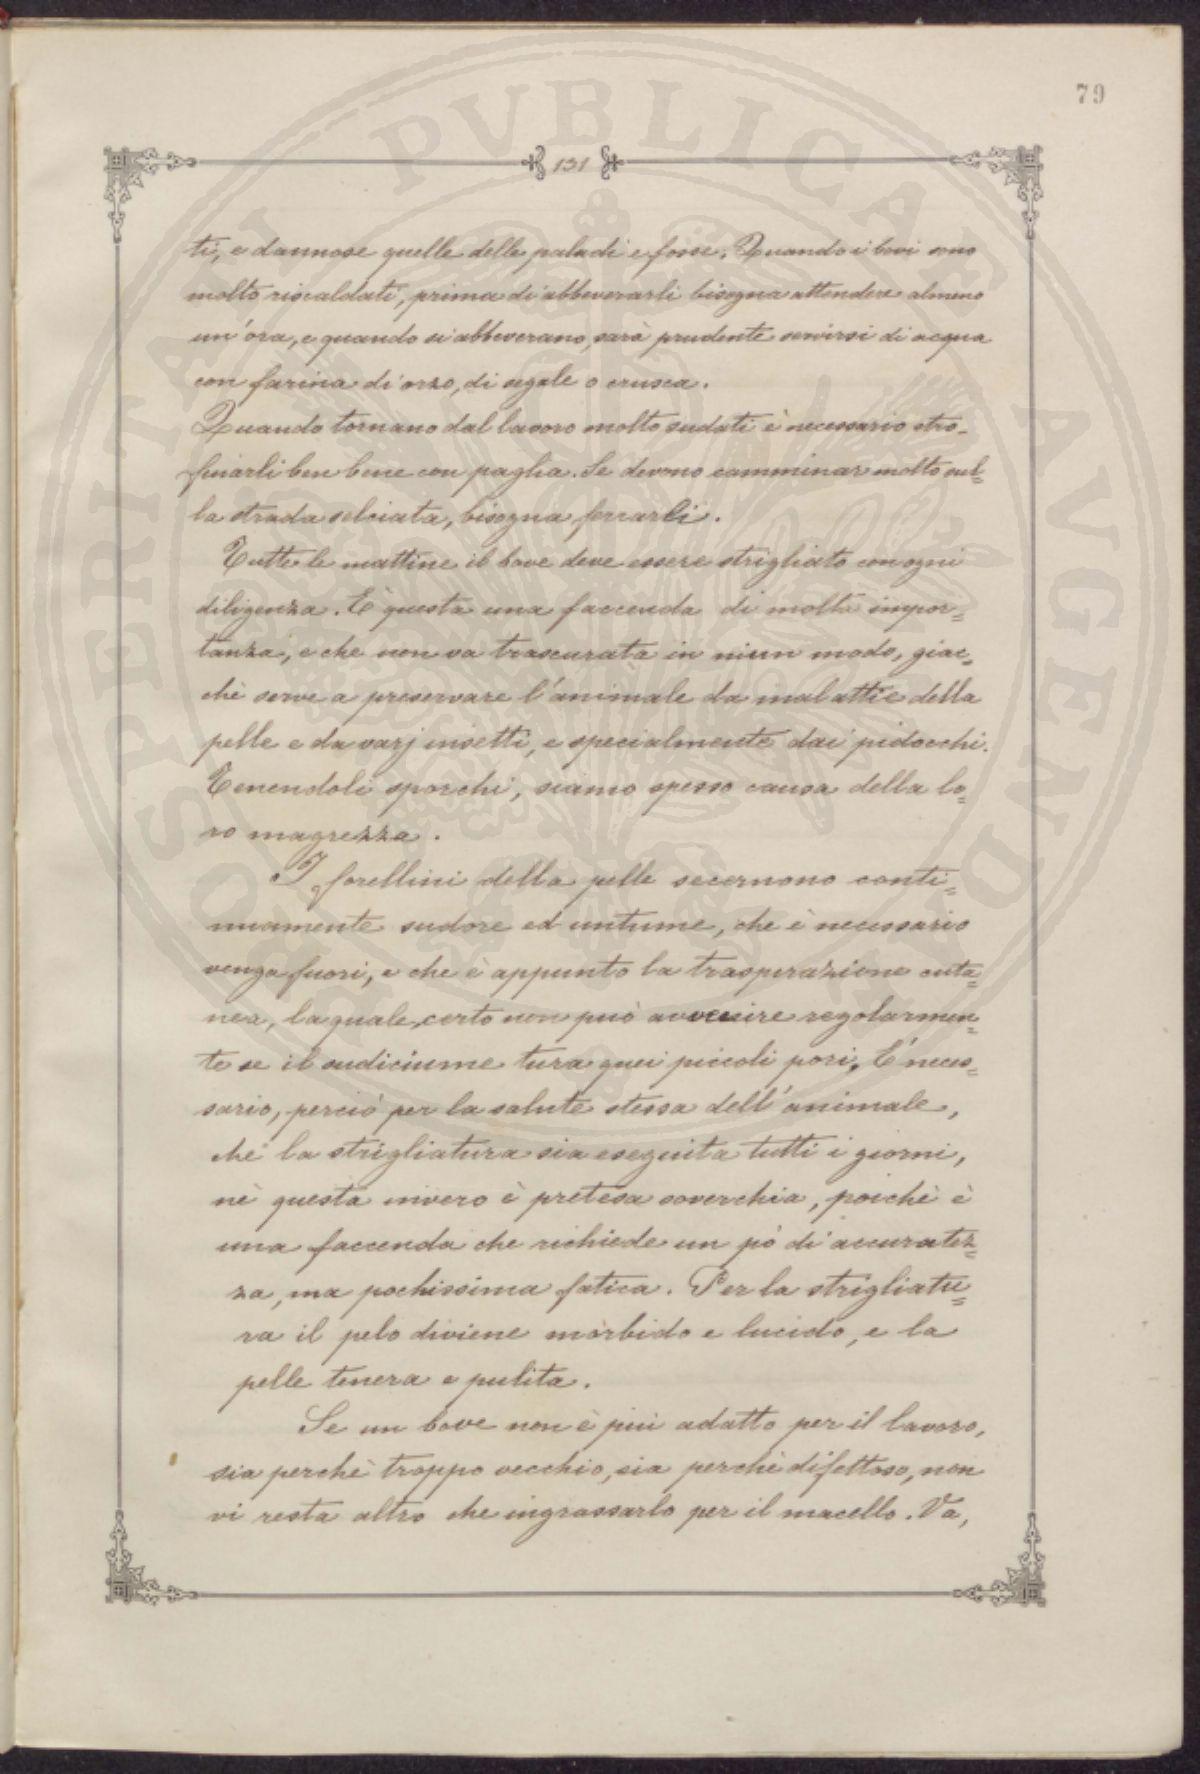 79
131
ti, e dannose quelle delle paludi e fosse. Quando i bovi sono
molto riscaldati, prima di abbeverarli bisogna attendere almeno
un'ora, e quando si abbeverano, sarà prudente servirsi di acqua
con farina di orzo, di segale o crusca.
Quando tornano dal lavoro molto sudati è necessario stro-
finarli ben bene con paglia. Se devono camminar molto sul=
la strada selciata, bisogna ferrarli.
Tutte le mattine il bove deve essere strigliato con ogni
diligenza. È questa una faccenda di molta impor=
tanza, e che non va trascurata in niun modo, giac=
chè serve a preservare l'animale da malattie della
pelle e da varj insetti, e specialmente dai pidocchi.
Tenendoli sporchi, siamo spesso causa della lo=
ro magrezza.
I forellini della pelle secernono conti=
nuamente sudore ed untume, che è necessario
venga fuori, e che è appunto la trasperazione cuta=
nea, la quale, certo non può avvenire regolarmen=
te se il sudiciume tura quei piccoli pori. È neces=
sario, perciò per la salute stessa dell'animale,
che la strigliatura sia eseguita tutti i giorni,
nè questa invero è pretesa soverchia, poichè è
una faccenda che richiede un pò di accuratez=
za, ma pochissima fatica. Per la strigliatu=
ra il pelo diviene morbido e lucido, e la
pelle tenera e pulita.
Se un bove non è più adatto per il lavoro,
sia perchè troppo vecchio, sia perchè difettoso, non
vi resta altro che ingrassarlo per il macello. Va,
PROSPERITATI PVBLICAE AVGENDAE